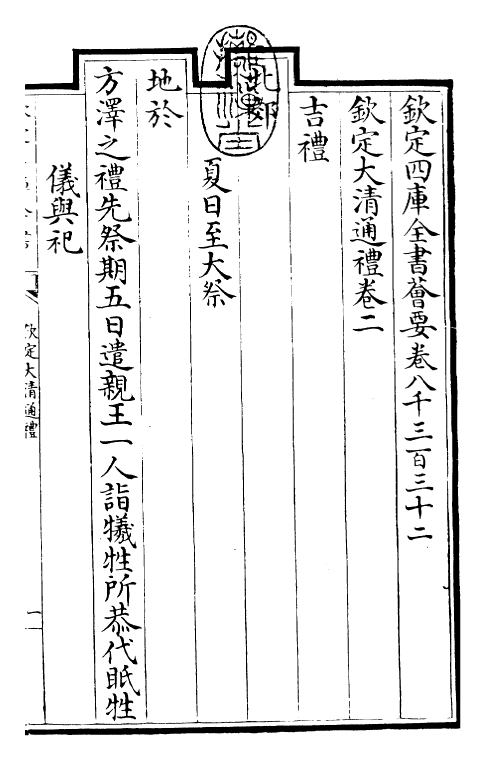 欽定四庫全書薈要卷八千三百三十二
欽定大清通禮卷二
吉禮
北郊
夏日至大祭
地於
方澤之禮先祭期五日遣親王一人詣犧牲所恭代眡牲
儀與祀
欽定大清通禮
一